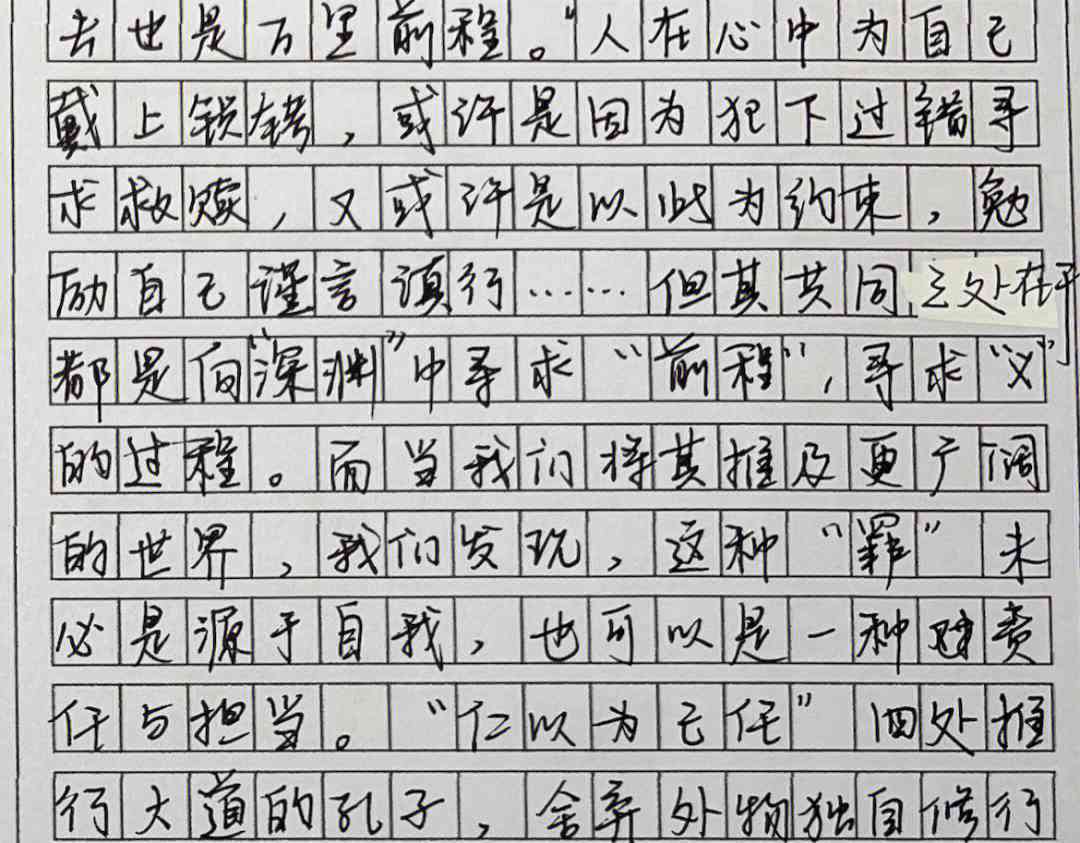 去也是万里前程。"人在心中为自己
戴上锁铐，或许是因为犯下过错寻
求救赎，又或许是以此为约束，勉
励自己谨言慎行……但其共同之处在于
都是向"深渊"中寻求"前程"，寻求"义"
的过程。而当我们将其推及更广阔
的世界，我们发现，这种"罪"未
必是源于自我，也可以是一种责
任与担当。"仁以为己任"四处推
行大道的孔子，舍弃外物独自修行